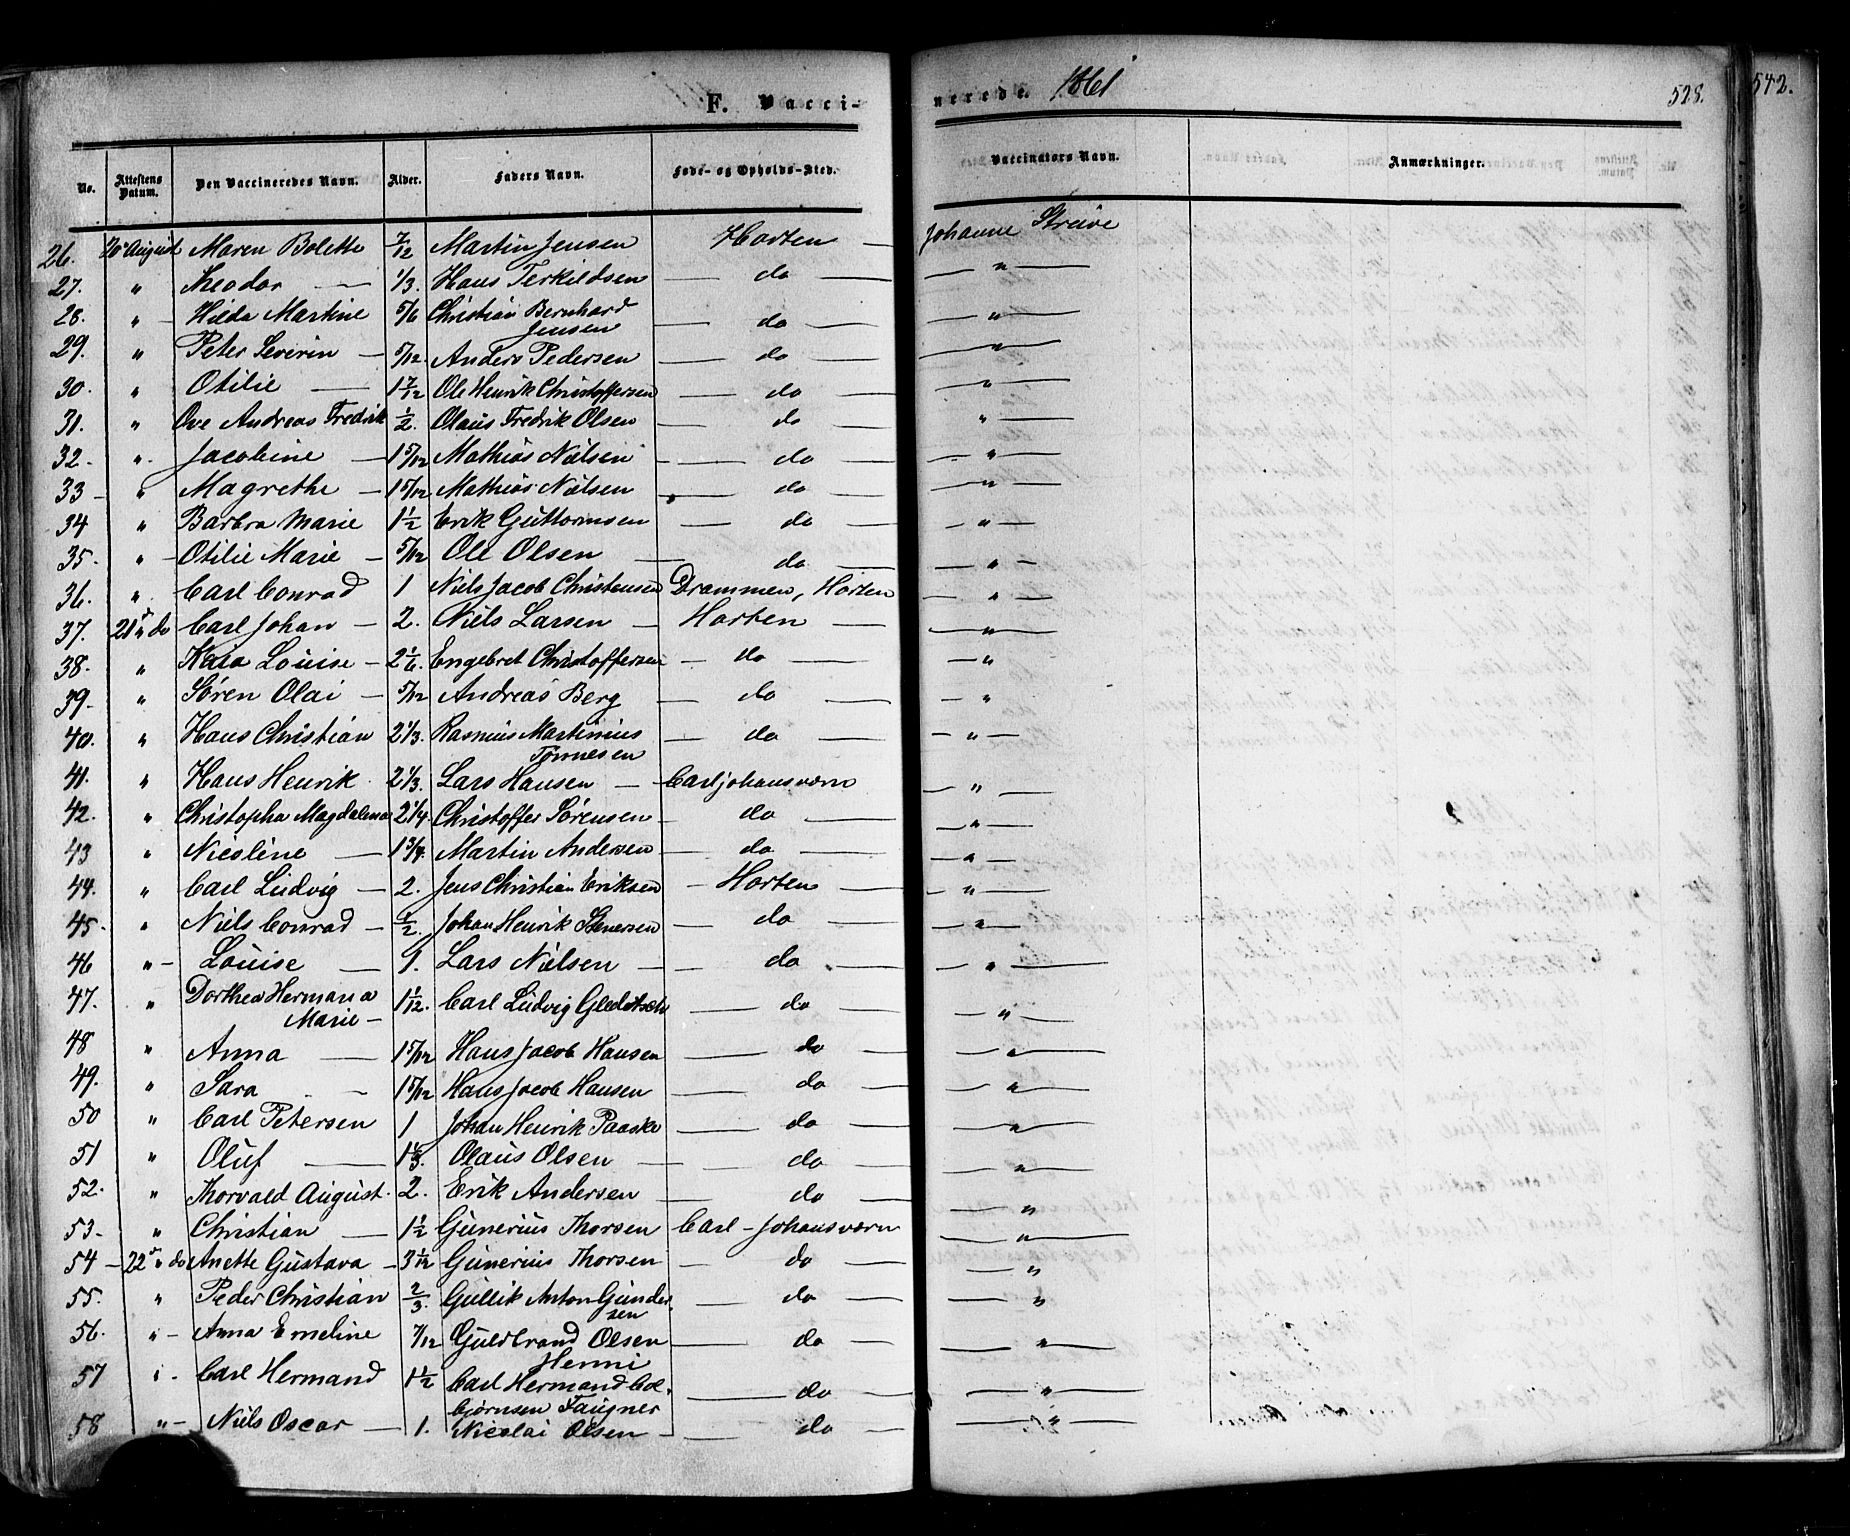 F. Vacci-
nerede. 1861
528.
542.
No. Attestens Datum. Den Vaccineredes Navn. Alder. Faders Navn. Føde- og Opholds-Sted. Vaccinators Navn. Anmærkninger.
26. 20 August Maren Bolette 7/12 Martin Jensen Horten — Johanne Streive
27. " Theodor — 1/3. Hans Terkildsen — do — — " —
28. " Hilda Martine 5/6 Christian Bernhard Jensen — do — — " —
29. " Peter Severin — 5/12. Anders Pedersen — do — — " —
30. " Otilie — 1 7/12 Ole Henrik Christoffersen — do — — " —
31. " Ove Andreas Fredrik 1/2. Olaus Fredrik Olsen — do — "
32. " Jacobine — 1 5/12 Mathias Nielsen — do — — " —
33 " Magrethe — 1 5/12 Mathias Nielsen — do — — " —
34 " Barbra Marie 1 1/2 Erik Guttormsen — do — — " —
35. " Otilie Marie — 5/12 Ole Olsen — do — — " —
36. " Carl Conrad 1 Niels Jacob Christensen Drammen, Horten — " —
37. 21 " do Carl Johan — 2. Niels Larsen — Horten — — " —
38. " Louise — 2 1/6. Engebret Christoffersen — do — — "
39. " Søren Olai — 5/12 Andreas Berg — do — "
40. " Hans Christian 2 1/3. Rasmus Martinius Tønnesen — do — — " —
41. " Hans Henrik 2 1/3. Lars Hansen — Carljohansværn — " —
42. " Christopha Magdalena 2 1/4. Christoffer Sørensen — do — — " —
43 " Nicoline — 1 3/4. Martin Andersen — do — — " —
44. " Carl Ludvig — 2. Jens Christian Eriksen — Horten — — " —
45. " Niels Conrad — 1/2. Johan Henrik Stenersen — do — — " —
46 " — Louise — 1. Lars Nielsen — — do — — " —
47. " Dorthea Hermana Marie — 1 1/12. Carl Ludvig Gleditsch — do — — " —
48 " Anna — 1 5/12 Hans Jacob Hansen — do — — " —
49. " Sara — 1 5/12 Hans Jacob Hansen — do — — " —
50 " Carl Petersen 1 Johan Henrik Paaske — do — — " —
51 " Oluf — 1 1/3. Olaus Olsen — — do — — " —
52. " Thorvald August. 2. Erik Andersen — do — — " —
53. " Christian — 1 1/2 Gunerius Thorsen Carl-Johansværn — " —
54 — 22 " do Anette Gustava — 3 1/12 Gunerius Thorsen — do — — " —
55. " Peder Christian 2/3. Gullik Anton Gundersen — do — — " —
56. " — Anna Emeline 7/12 Guldbrand Olsen — do — — " —
57 " - Carl Hermand 1 1/2 Henni Carl Hermand Colbjørnsen Faugner — do — — " —
58 " — Niels Oscar — 1. Nicolai Olsen — — do — — " —